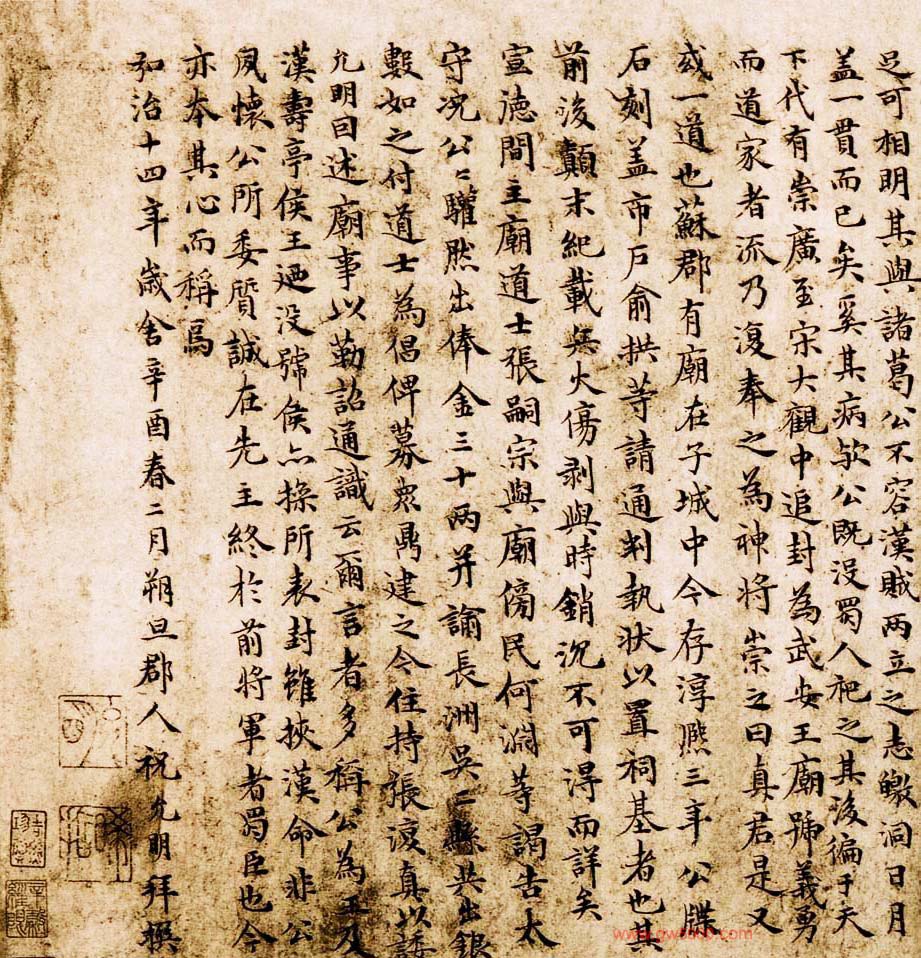 足可相明其與諸葛公不容漢賊两立之志皦洞日月
盖一貫而已矣奚其病欤公既没蜀人祀之其後徧于天
下代有崇廣至宋大觀中追封為武安王廟號義勇
而道家者流乃復奉之為神将崇之曰真君是又
或一道也蘇郡有廟在子城中今存淳熈三年公牒
石刻盖市戶俞拱等請通判執状以置祠基者也其
前後顛末紀載兵火傷剥與時銷沉不可淂而詳矣
宣德間主廟道士張嗣宗與廟傍民何渊等謁告太
守况公〻驩然出俸金三十两并諭長洲吴二縣共出銀
數如之付道士為倡俾募衆鼎建之今住持張復真以諉
允明曰述廟事以勒詔通識云爾言者多稱公為王及
漢壽亭侯王廼没號侯亦操所表封雖挾漢命非公
夙懷公所委質誠在先主終於前将軍者蜀臣也今
亦本其心而稱焉
弘治十四年歲舍辛酉春二月朔旦郡人祝允明拜撰